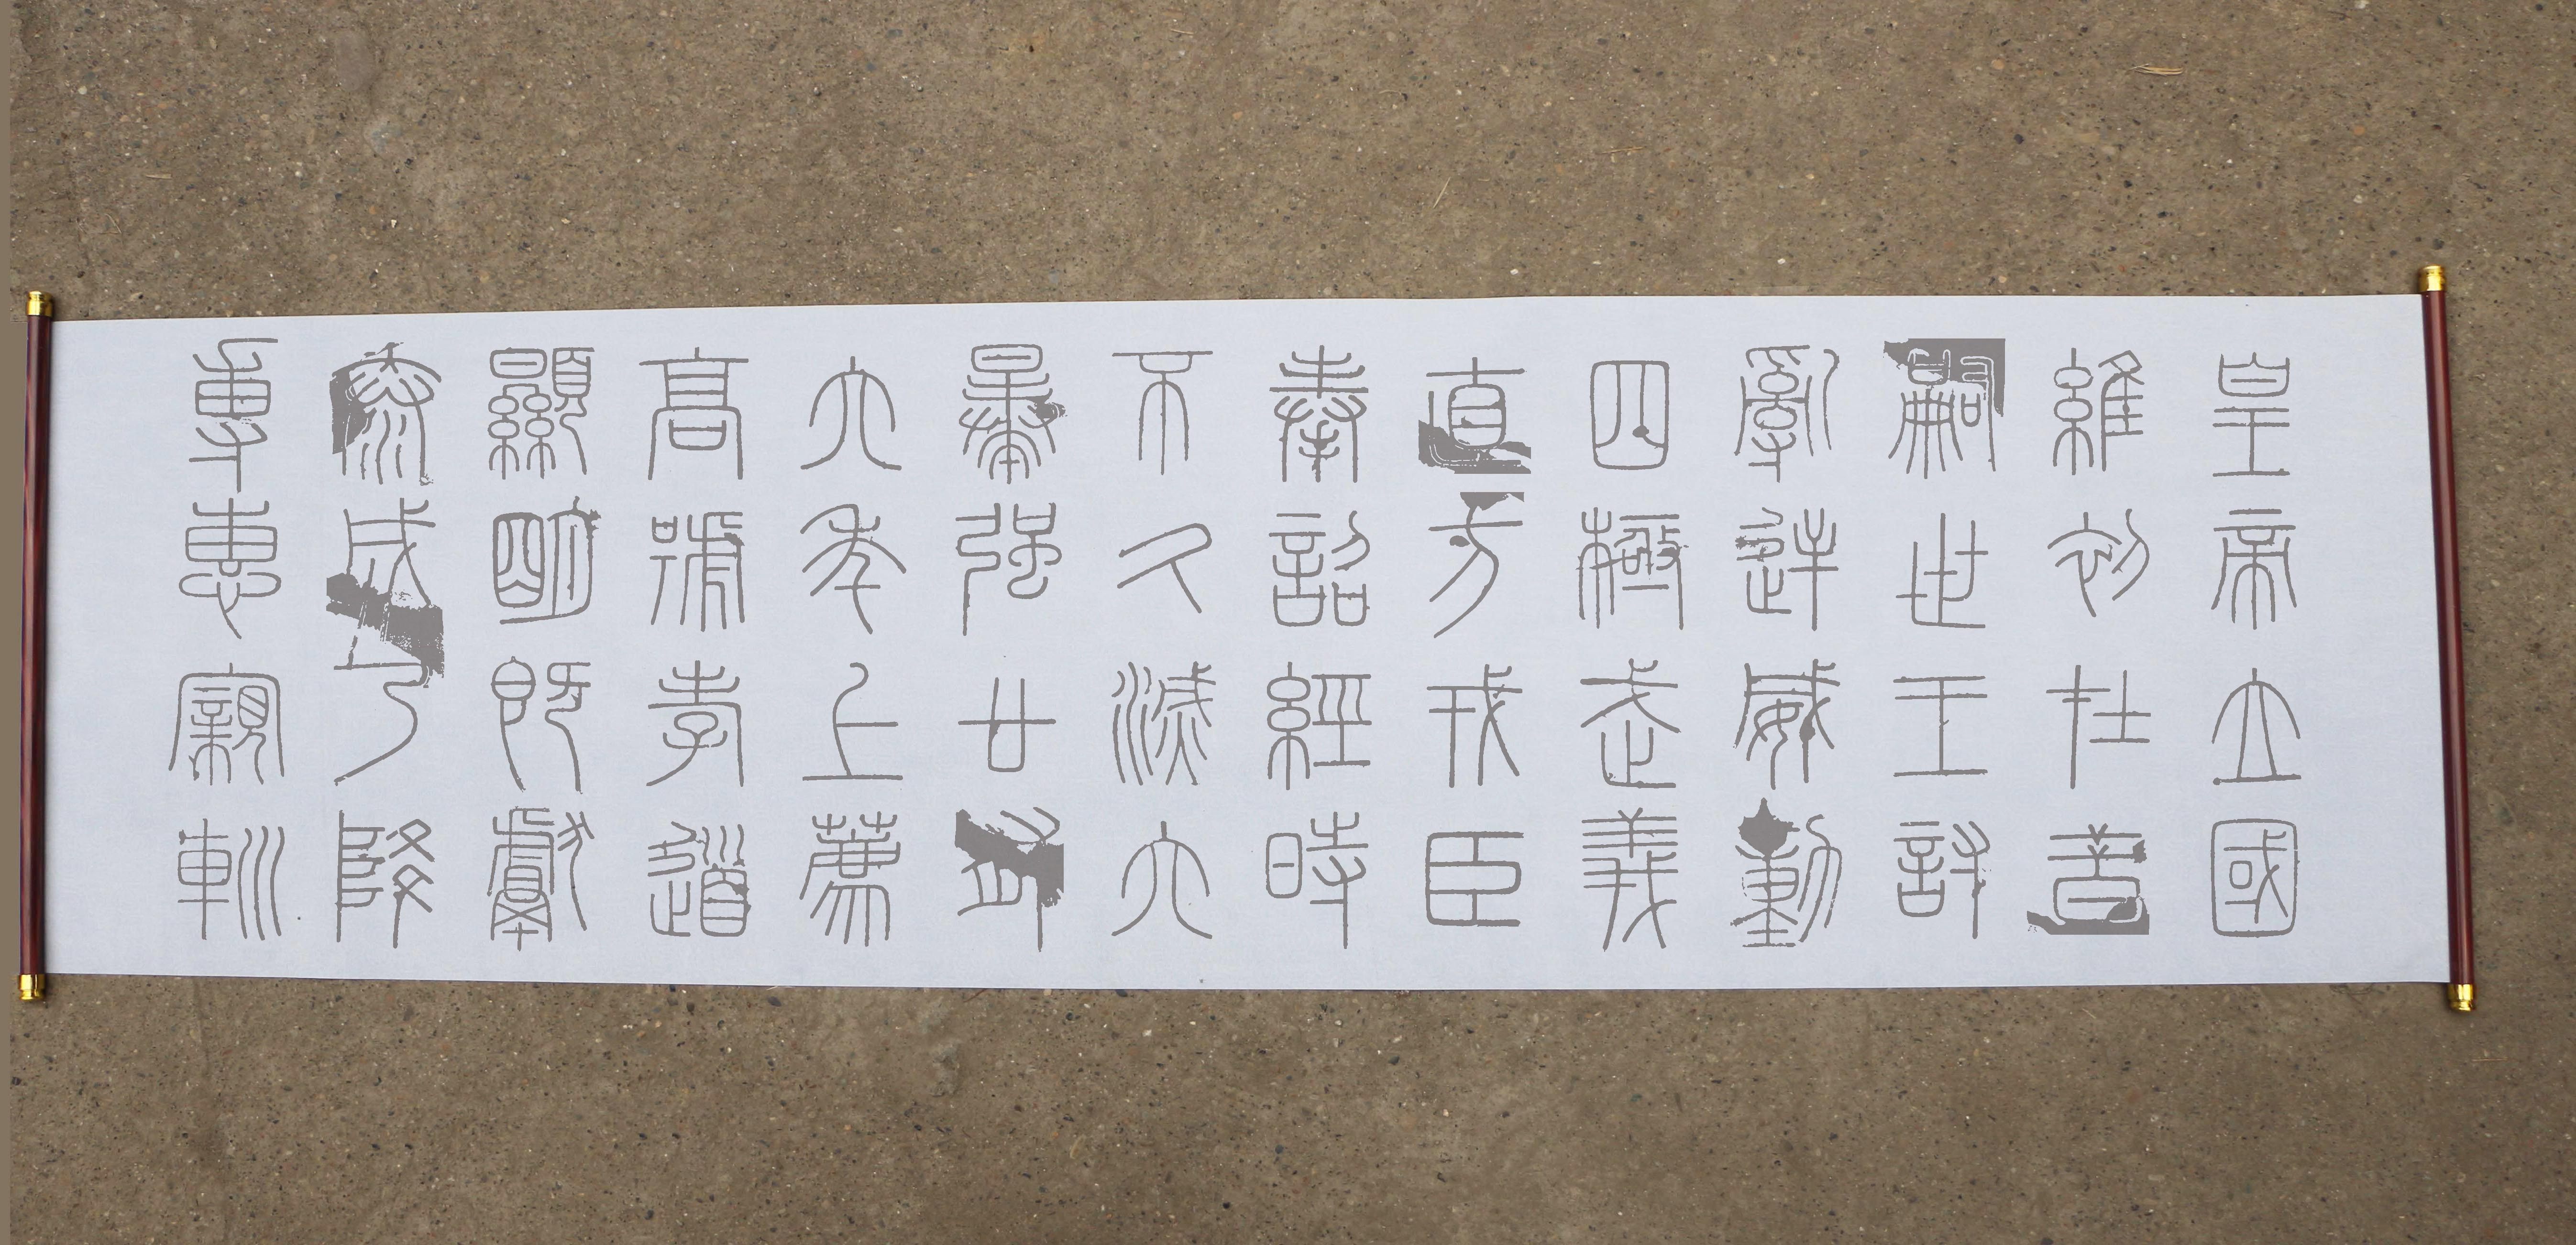 皇帝立國
維初在昔
嗣世王討
亂逆威動
四極武義
直方戎臣
奉詔經時
不久滅六
暴強廿有
六年上薦
高號孝道
顯明既獻
泰成乃降
專惠寴巡